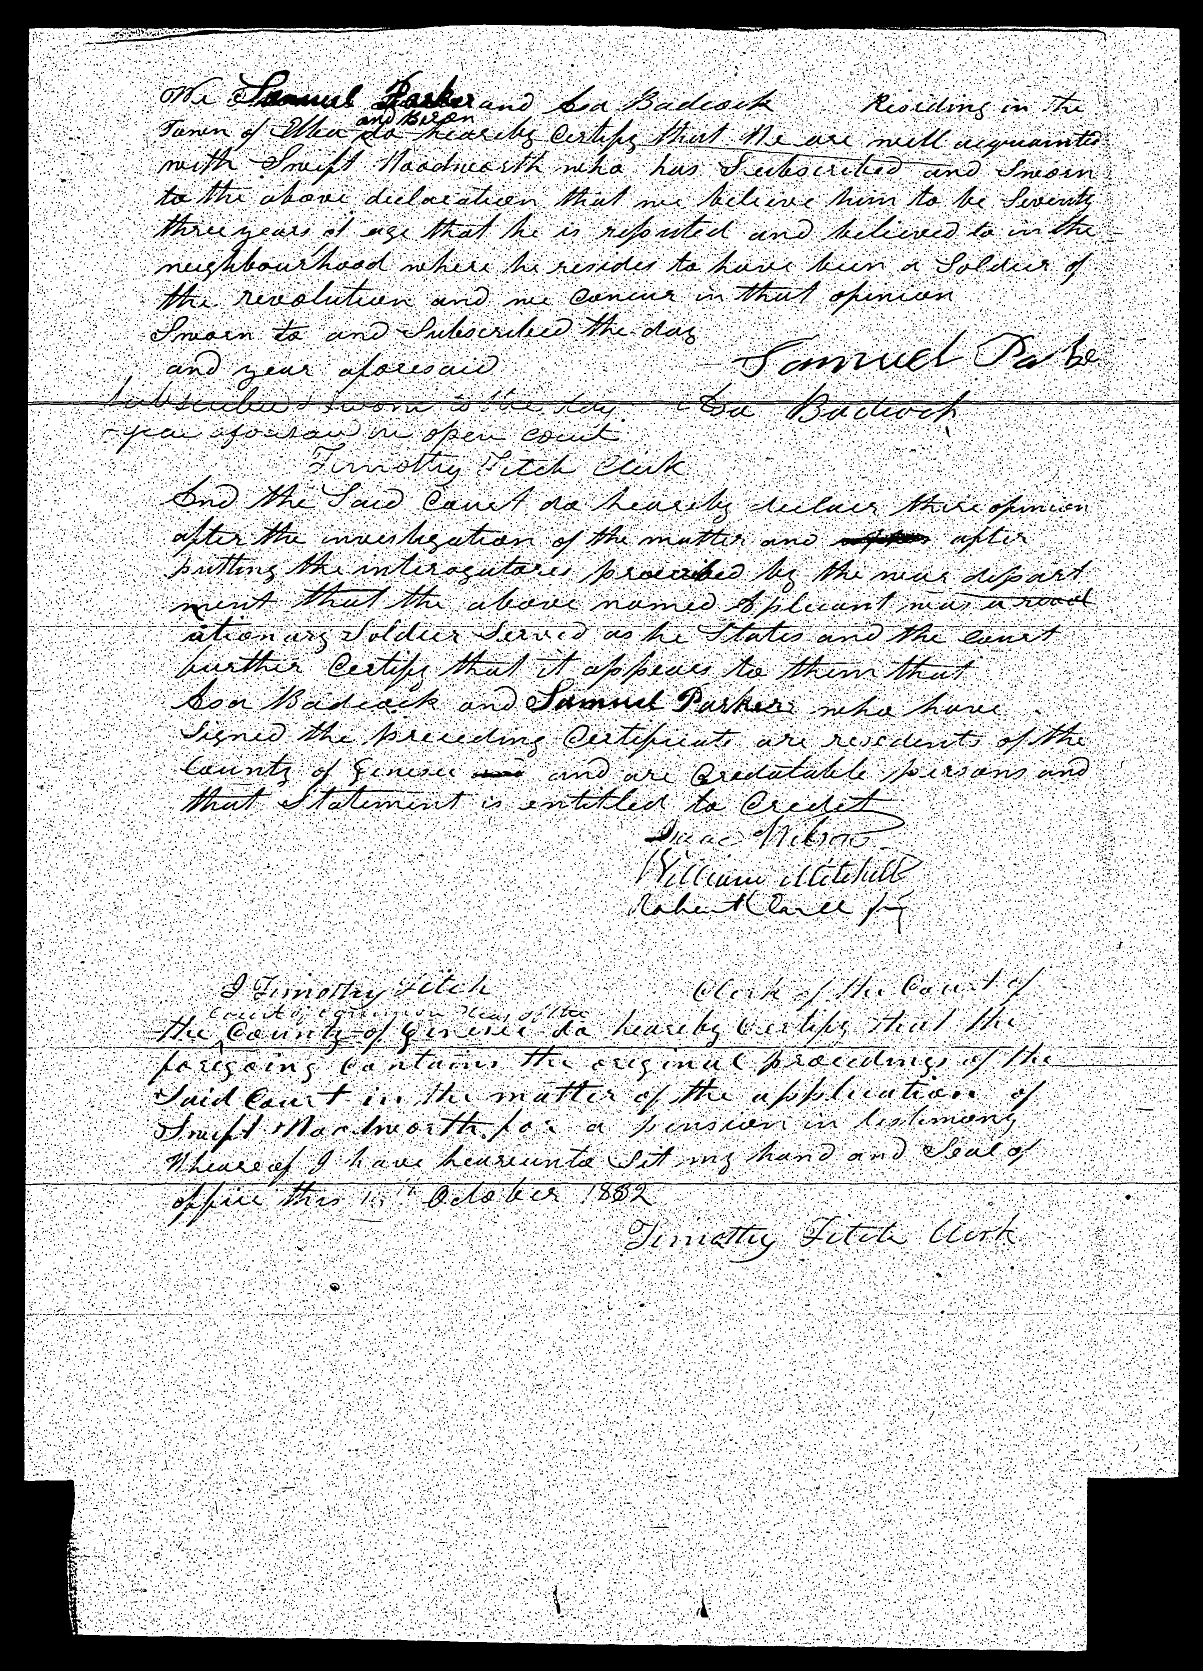 We Samuel Parker and Asa Badcock Residing in the
and Biron
Town of Elba do heareby Certify that We are well acquainted
with Swift Woodworth who has Subscribed and Sworn
to the above declaration that we believe him to be Seventy
three years of age that he is reputed and believed to in the
neighbourhood where he resides to have been a Soldier of
the revolution and we Concur in that opinion
Sworn to and Subscribed the day
and year aforesaid
Samuel Parker
Subscribed & Sworn to the day
Asa Badcock
& year aforesaid in open court
Timothy Fitch Clerk
And the Said Court do heareby declare there opinion
after the investigation of the matter and after
putting the interogatores proscribed by the war depart
ment that the above named Aplicant was a revol
utionary Soldier Served as he States and the court
further Certify that it appears to them that
Asa Badcock and Samuel Parker who have
Signed the preceding Certificate are residents of the
County of Genesee and are Credatable persons and
that Statement is entitled to Credet
Isaac Wilson
William Mitchell
Robert Earll Jr
I Timothy Fitch Clerk of the Court of
Court of Common Pleas of the
the County of Genesee do hearеby Certify that the
foregoing Contains the original proceedings of the
Said Court in the matter of the application of
Swift Woodworth for a pension in testimony
Wheareof I have heareunto Set my hand and Seal of
office this October 1832
Timothy Fitch Clerk